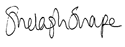 Shelagh Snape